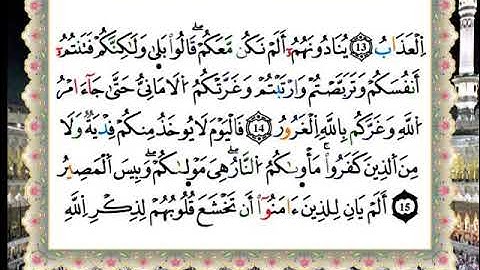 اِ۬لْعَذَابُ 13 يُنَادُونَهُمُۥٓ أَلَمْ نَكُن مَّعَكُمْۖ قَالُواْ بَلَىٰ وَلَٰكِنَّكُمْ فَتَنتُمُۥٓ
أَنفُسَكُمْ وَتَرَبَّصْتُمْ وَارْتَبْتُمْ وَغَرَّتْكُمُ اُ۬لَامَانِيُّ حَتَّىٰ جَآءَ امْرُ
اُ۬للَّهِ وَغَرَّكُم بِاللَّهِ اِ۬لْغَرُورُ 14 فَالْيَوْمَ لَا يُوخَذُ مِنكُمْ فِدْيَةٌ وَلَا
مِنَ اَ۬لذِينَ كَفَرُواْۖ مَأْوَىٰكُمُ اُ۬لنَّارُۖ هِيَ مَوْلَىٰكُمْۖ وَبِيسَ اَ۬لْمَصِيرُ
15 أَلَمْ يَانِ لِلذِينَ ءَامَنُوٓاْ أَن تَخْشَعَ قُلُوبُهُمْ لِذِكْرِ اِ۬للَّهِ